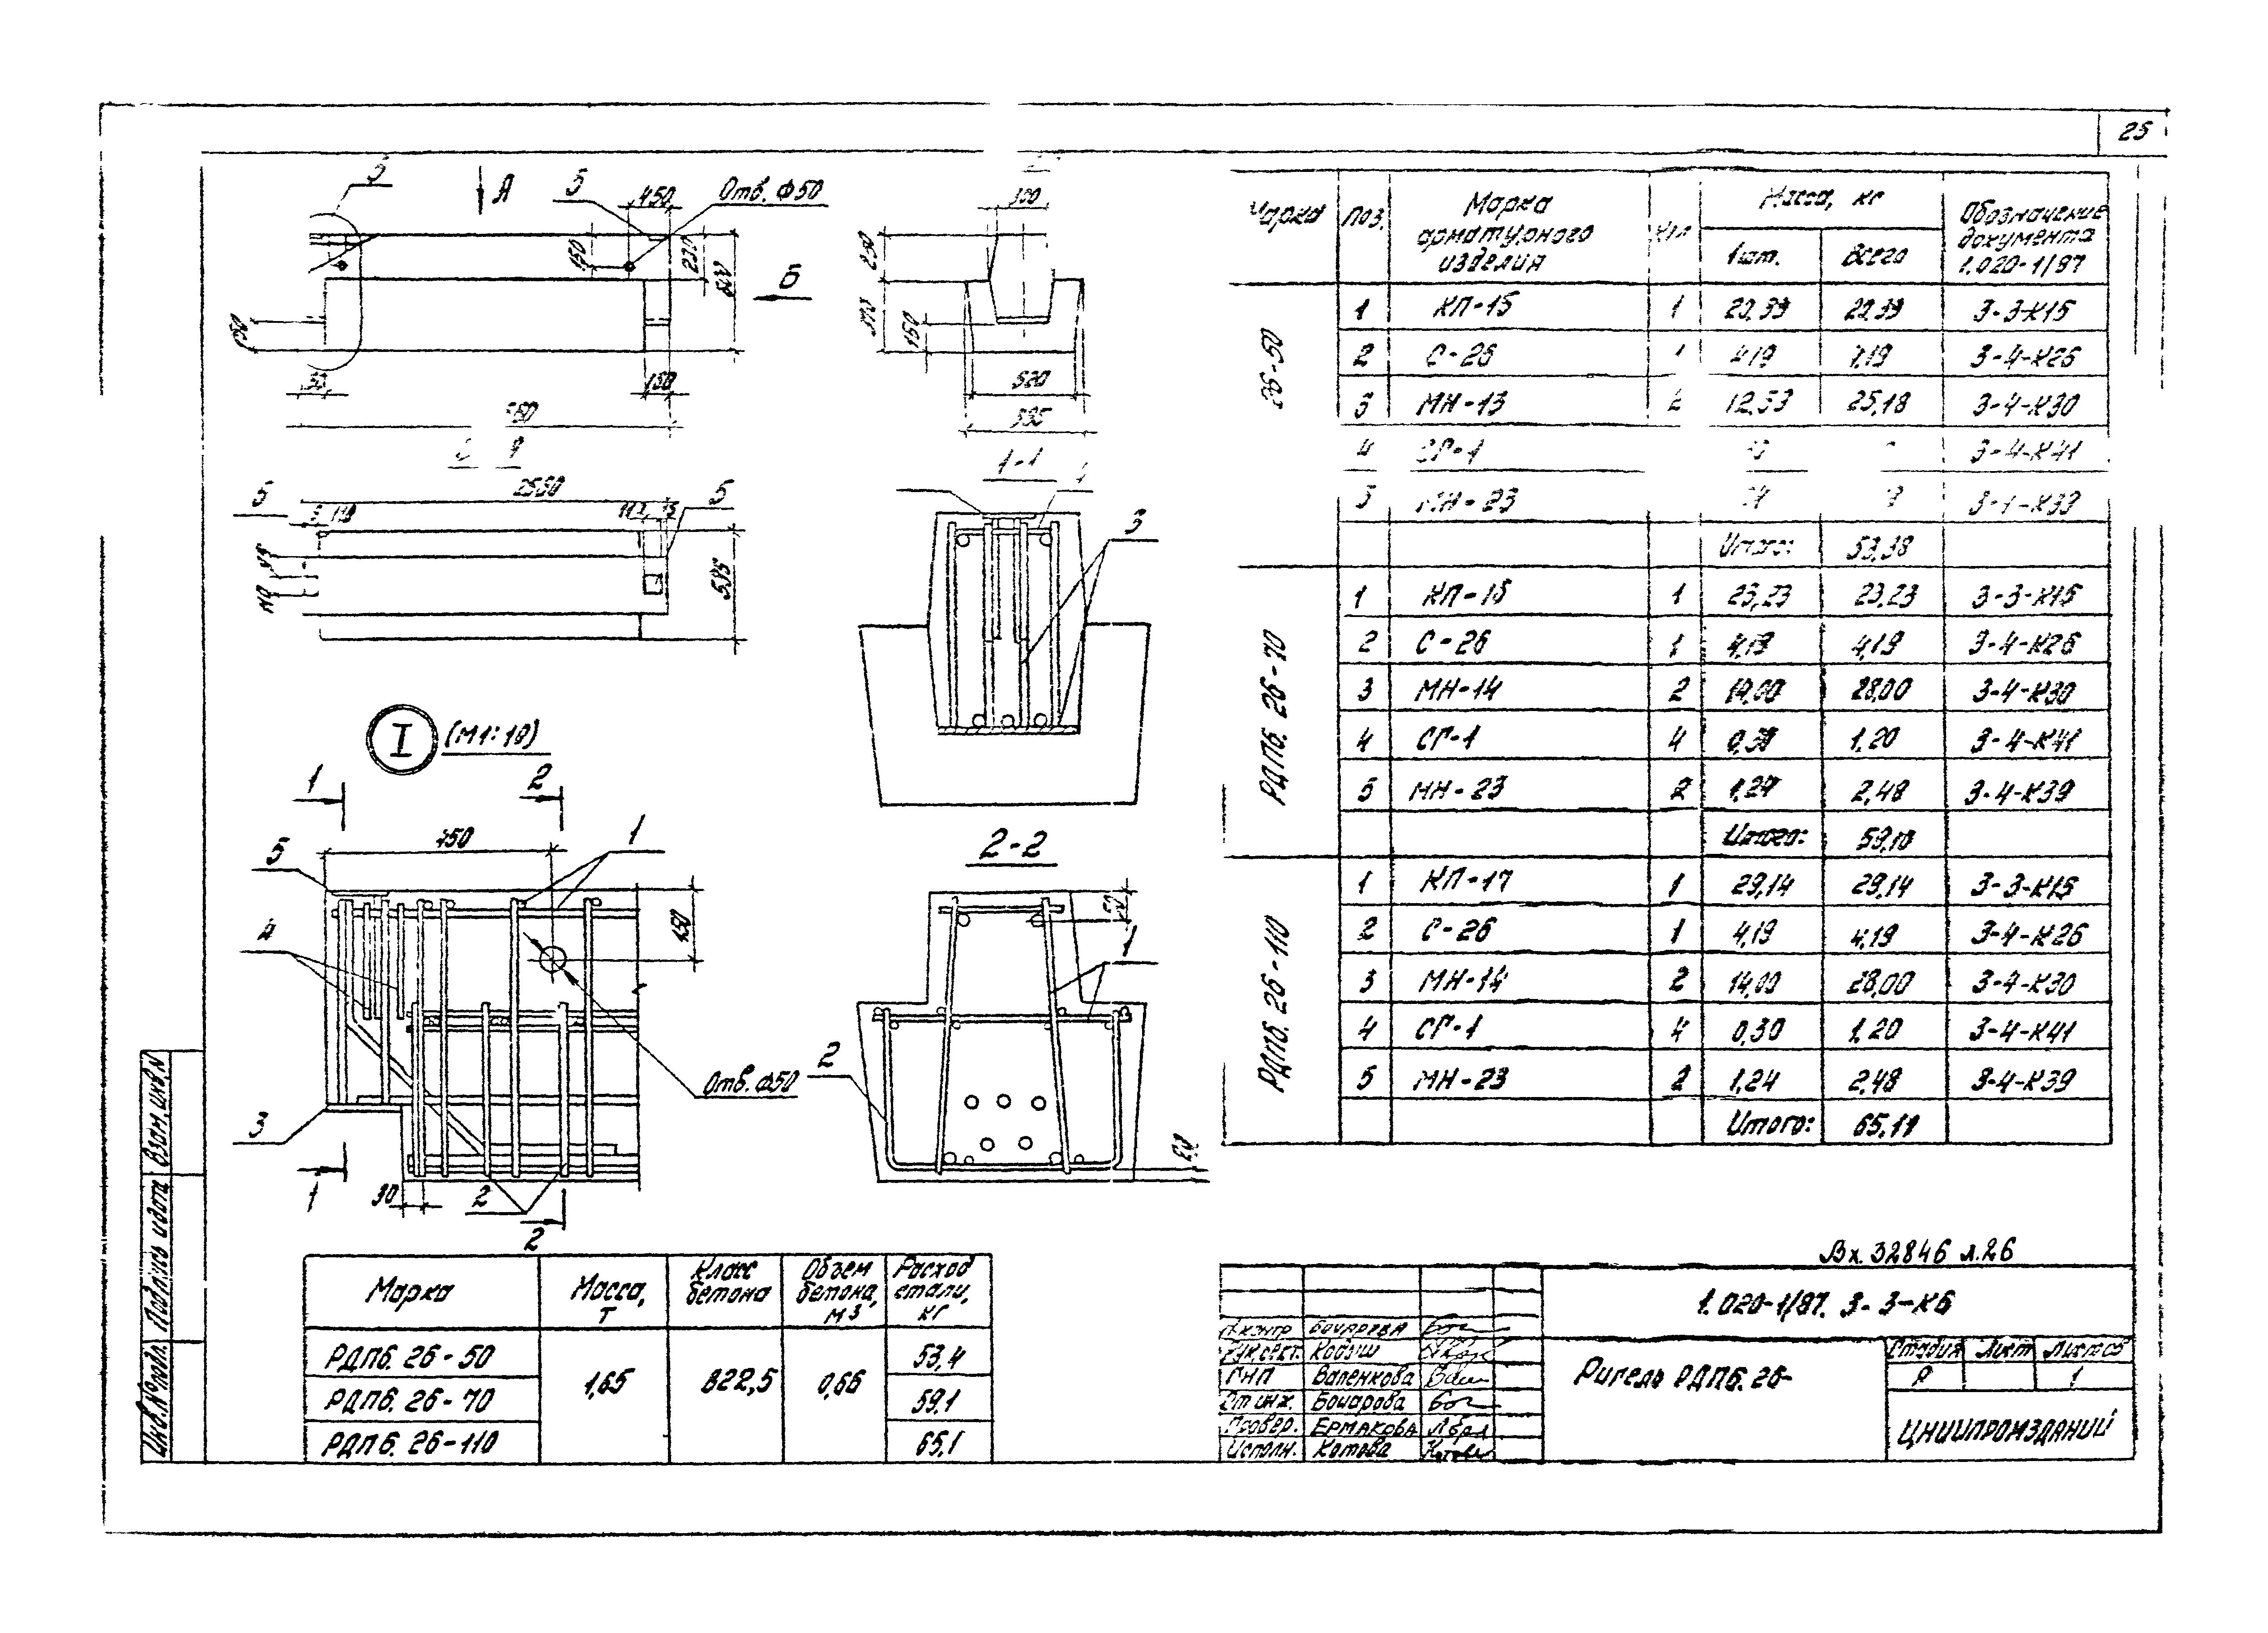 25
5
А
5
450
Отв. Ф50
150
Б
150
150
300
150
520
595
А
2560
5
5
595
110
I
(М1:10)
1-1
3
1
2
450
1
5
4
150
Отв. Ф50
3
1
30
2
2
2-2
50
1
2
20
Марка
Поз.
Марка арматурного изделия
Масса, кг
1шт.
Всего
Обозначение документа 1.020-1/87
26-50
1 КП-15 1 20,39 20,39 3-3-К15
2 С-26 1 4,19 4,19 3-4-К26
3 МН-13 2 25,18 3-4-К30
4 СГ-1 3-4-К41
5 МН-23
Итого: 53,38
РДП6. 26-70
1 1 23,23 23,23 3-3-К15
2 С-26 1 4,19 4,19 3-4-К26
3 МН-14 2 14,00 28,00 3-4-К30
4 СГ-1 4 0,30 1,20 3-4-К41
5 МН-23 2 1,24 2,48 3-4-К39
Итого: 59,10
РДП6. 26-110
1 КП-17 1 29,14 29,14 3-3-К15
2 С-26 1 4,19 4,19 3-4-К26
3 МН-14 2 14,00 28,00 3-4-К30
4 СГ-1 4 0,30 1,20 3-4-К41
5 МН-23 2 1,24 2,48 3-4-К39
Итого: 65,11
Марка
Масса, т
Класс бетона
Объем бетона, м3
Расход стали, кг
РДП6. 26-50 53,4
РДП6. 26-70 1,65 В22,5 0,66 59,1
РДП6. 26-110 65,1
Инв. № подл.
Подпись и дата
Взам. инв. №
Вх. 32846 л.26
1.020-1/87. 3-3-К6
Ригель РДП6.26-
Стадия Лист Листов
Р 1
ЦНИИПРОМЗДАНИЙ
Н.контр. Бочарова
ГИП Валенкова
Ст.инж. Бочарова
Провер. Ермакова
Исполн. Котова